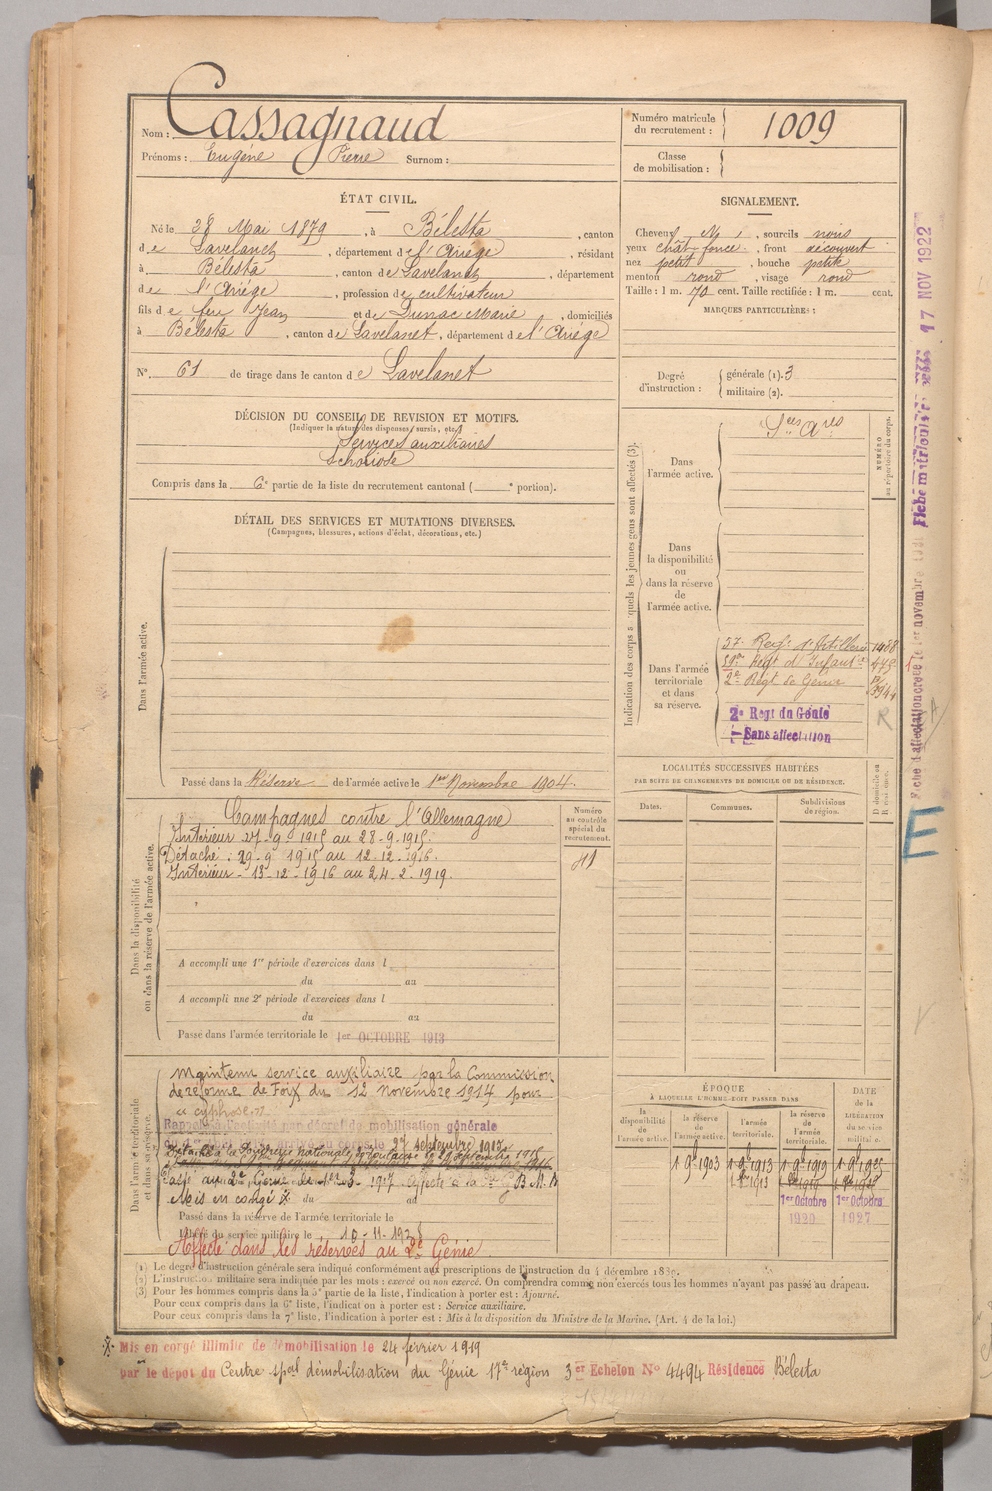 Nom : Cassagnaud
Prénoms : Eugène Pierre Surnom :
Numéro matricule du recrutement : 1009
Classe de mobilisation :
ÉTAT CIVIL.
Né le 28 Mai 1879, à Bélesta, canton
de Lavelanet, département de l'Ariège, résidant
à Bélesta, canton de Lavelanet, département
de l'Ariège, profession de cultivateur
fils de feu Jean et de Dunac Marie, domiciliés
à Bélesta, canton de Lavelanet, département de l'Ariège
N° 61 de tirage dans le canton de Lavelanet
SIGNALEMENT.
Cheveux, sourcils noirs
yeux chât. foncé, front découvert
nez petit, bouche petite
menton rond, visage rond
Taille : 1 m. 70 cent. Taille rectifiée : 1 m. cent.
MARQUES PARTICULIÈRES :
Degré d'instruction : générale (1). 3
militaire (2).
DÉCISION DU CONSEIL DE REVISION ET MOTIFS.
(Indiquer la nature des dispenses, sursis, etc.)
Services auxiliaires
Compris dans la 6e partie de la liste du recrutement cantonal ( e portion).
DÉTAIL DES SERVICES ET MUTATIONS DIVERSES.
(Campagnes, blessures, actions d'éclat, décorations, etc.)
Dans l'armée active.
Passé dans la Réserve de l'armée active le 1er Novembre 1904.
Indication des corps auxquels les jeunes gens sont affectés (3).
NUMÉRO au répertoire du corps.
Dans l'armée active.
Sces Ares
Dans la disponibilité ou dans la réserve de l'armée active.
Dans l'armée territoriale et dans sa réserve.
57e Regt d'Artillerie
Regt d'Infantie
2e Régt de Génie
2e Régt du Génie
Sans affectation
LOCALITÉS SUCCESSIVES HABITÉES
PAR SUITE DE CHANGEMENTS DE DOMICILE OU DE RÉSIDENCE.
Dates. Communes. Subdivisions de région.
Dans la disponibilité ou dans la réserve de l'armée active.
Numéro au contrôle spécial du recrutement.
Campagnes contre l'Allemagne
Intérieur 27-9-1915 au 28-9-1915.
Détaché : 29-9 1915 au 12-12-1916.
Intérieur - 13-12-1916 au 24-2-1919.
A accompli une 1re période d'exercices dans l
du au
A accompli une 2e période d'exercices dans l
du au
Passé dans l'armée territoriale le 1er OCTOBRE 1913
Dans l'armée territoriale et dans sa réserve.
Maintenu service auxiliaire par la Commission
de réforme de Foix du 12 novembre 1914 pour
"cyphose."
Rappelé à l'activité par décret de mobilisation générale
arrivé au corps le 27 septembre 1915
Détaché à la Poudrerie nationale de Toulouse le 29 septembre 1915
Passé au 2e Génie le 1er 3-1917. Affecté à la
Mis en congé * du au
Passé dans la réserve de l'armée territoriale le
Libéré du service militaire le 10-11-1928
Affecté dans les réserves au 2e Génie
ÉPOQUE
À LAQUELLE L'HOMME DOIT PASSER DANS
la disponibilité de l'armée active. la réserve de l'armée active. l'armée territoriale. la réserve de l'armée territoriale.
DATE de la LIBÉRATION du service militaire.
1 9bre 1903 1 9bre 1913 1 9bre 1919
1er Octobre 1920 1er Octobre 1927
(1) Le degré d'instruction générale sera indiqué conformément aux prescriptions de l'instruction du 4 décembre 1889.
(2) L'instruction militaire sera indiquée par les mots : exercé ou non exercé. On comprendra comme non exercés tous les hommes n'ayant pas passé au drapeau.
(3) Pour les hommes compris dans la 5e partie de la liste, l'indication à porter est : Ajourné.
Pour ceux compris dans la 6e liste, l'indication à porter est : Service auxiliaire.
Pour ceux compris dans la 7e liste, l'indication à porter est : Mis à la disposition du Ministre de la Marine. (Art. 4 de la loi.)
* Mis en congé illimité de démobilisation le 24 février 1919
par le dépôt du Centre spal démobilisation du Génie 17e région 3er Echelon N° 4494 Résidence Bélesta
17 NOV 1922
E